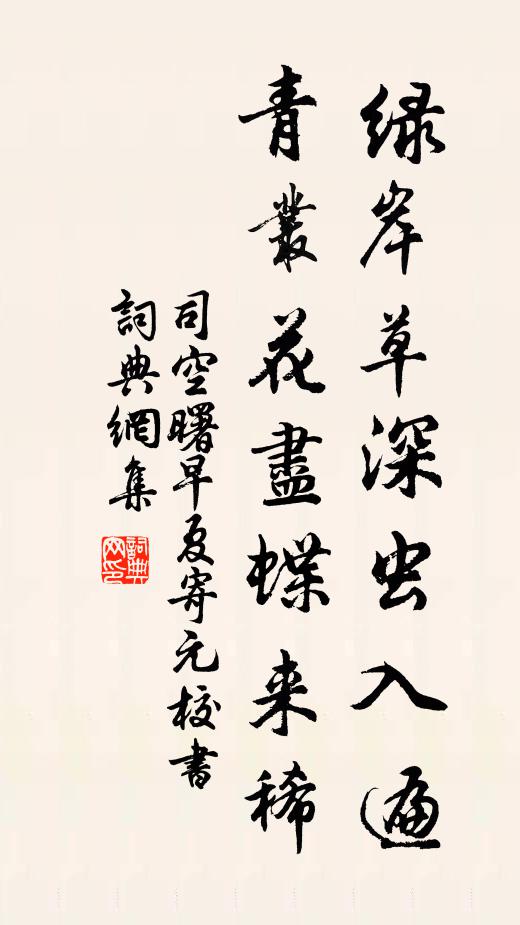 绿岸草深虫入遍
青叢花盡蝶来稀
司空曙早夏寄元校書
詞典網集
詞典網印